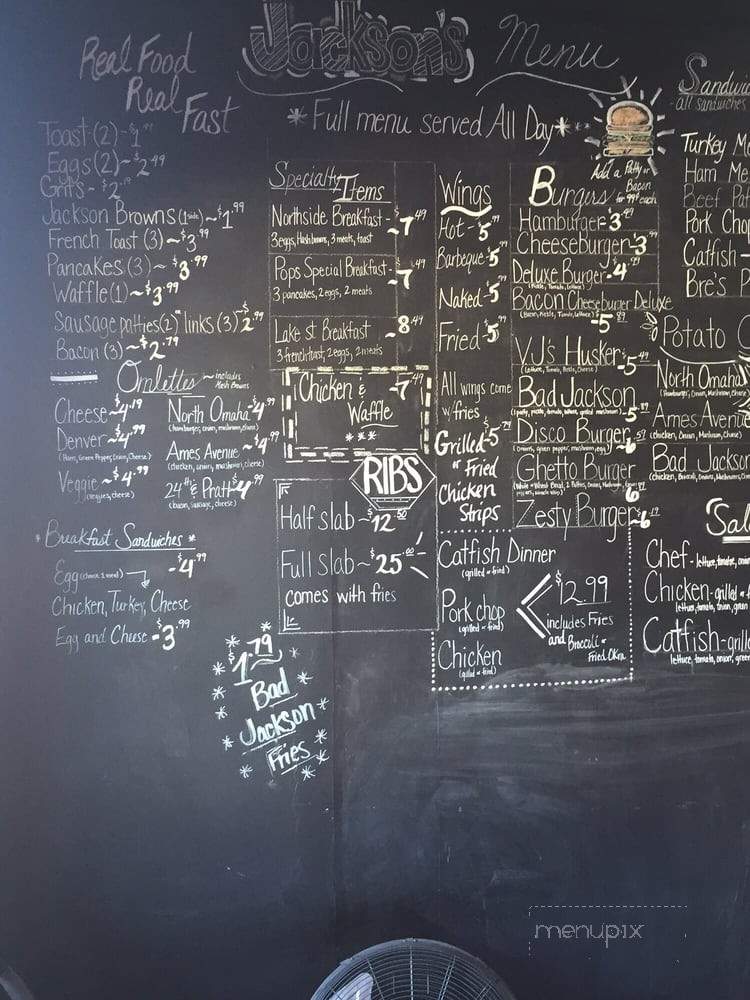 Jackson's Menu
Real Food
Real Fast
*Full menu served All Day*
Toast (2) - $1
Eggs (2) ~ $2.49
Grits - $2
Jackson Browns ~ $1.99
French Toast (3) ~ $3.99
Pancakes (3) ~ $3.99
Waffle (1) ~ $3.99
Sausage patties (2) links (3) $2.99
Bacon (3) ~ $2.79
Omlettes ~ includes Hash Browns
Cheese ~ $4.19
Denver ~ $4.99
(Ham, Green Pepper, Onion, Cheese)
Veggie ~ $4.99
(veggies, cheese)
North Omaha $4.99
(hamburger, onion, mushroom, cheese)
Ames Avenue ~ $4.99
(chicken, onion, mushroom, cheese)
24th & Pratt $4.99
(bacon, sausage, cheese)
*Breakfast Sandwiches*
Egg (choice 1 meat) - $4.99
Chicken, Turkey, Cheese
Egg and Cheese - $3.99
$1.79
Bad
Jackson
Fries
Specialty Items
Northside Breakfast - ~ $7.49
3 eggs, Hashbrowns, 3 meats, toast
Pops Special Breakfast - ~ $7.49
3 pancakes, 2 eggs, 2 meats
Lake st Breakfast ~ 8.49
3 french toast, 2 eggs, 2 meats
Chicken & - 7.49
Waffle
RIBS
Half slab ~ $12.50
Full slab ~ $25
comes with fries
Wings
Hot - $5.99
Barbeque - $5.99
Naked - $5.99
Fried - $5.99
All wings come
w/ fries
Grilled - $5.79
or Fried
Chicken
Strips
Burgers
Add a Patty or
Bacon
for 99¢ each
Hamburger - $3.49
Cheeseburger - $3
Deluxe Burger - $4.49
(Pickle, Tomato, Lettuce)
Bacon Cheeseburger Deluxe
(Bacon, Pickle, Tomato, Lettuce)
- $5.99
V.J's Husker - $5.49
(Lettuce, Tomato, Pickle, Cheese)
Bad Jackson
- $5.99
Disco Burger - 6.59
(onions, green pepper, mushroom, egg)
Ghetto Burger
6
Zesty Burger - $6.19
Catfish Dinner
(grilled or fried)
Pork chop
(grilled or fried)
Chicken
(grilled or fried)
$12.99
includes Fries
and Broccoli or
Fried Okra
- all sandwiches
Turkey
Ham
Beef
Pork
Catfish -
Bre's
Potato
North Omaha
(hamburger, Onion, Mushroom, Cheese)
Ames Avenue
(chicken, Onion, Mushroom, Cheese)
Bad Jackson
Chef - lettuce, tomato,
Chicken - grilled
lettuce, tomato, onion,
Catfish - grille
lettuce, tomato, onion, green
menupix